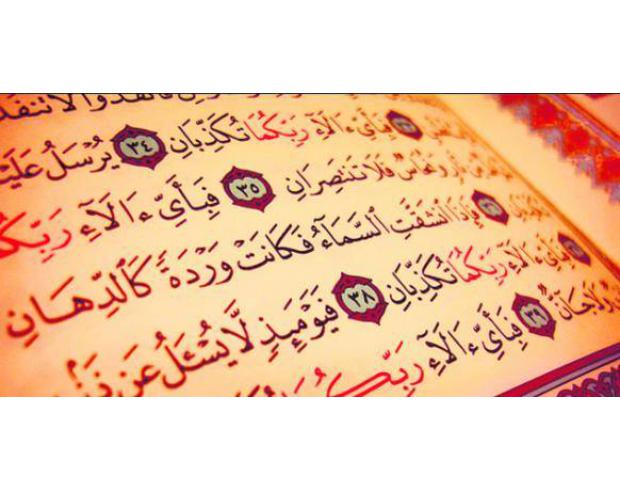 فَانفُذُوا لَا تَنفُذ
فَبِأَىِّ ءَالَآءِ رَبِّكُمَا تُكَذِّبَانِ ٣٤ يُرْسَلُ عَلَيْ
وَنُحَاسٌ فَلَا تَنتَصِرَانِ ٣٥ فَبِأَىِّ ءَالَآءِ رَبِّكُ
فَإِذَا ٱنشَقَّتِ ٱلسَّمَآءُ فَكَانَتْ وَرْدَةً كَٱلدِّهَانِ
فَبِأَىِّ ءَالَآءِ رَبِّكُمَا تُكَذِّبَانِ ٣٨ فَيَوْمَئِذٍ لَّا يُسْـَٔلُ عَن ذَنۢ
وَلَا جَآنٌّ ٣٩ فَبِأَىِّ ءَالَآءِ رَبِّكُمَا